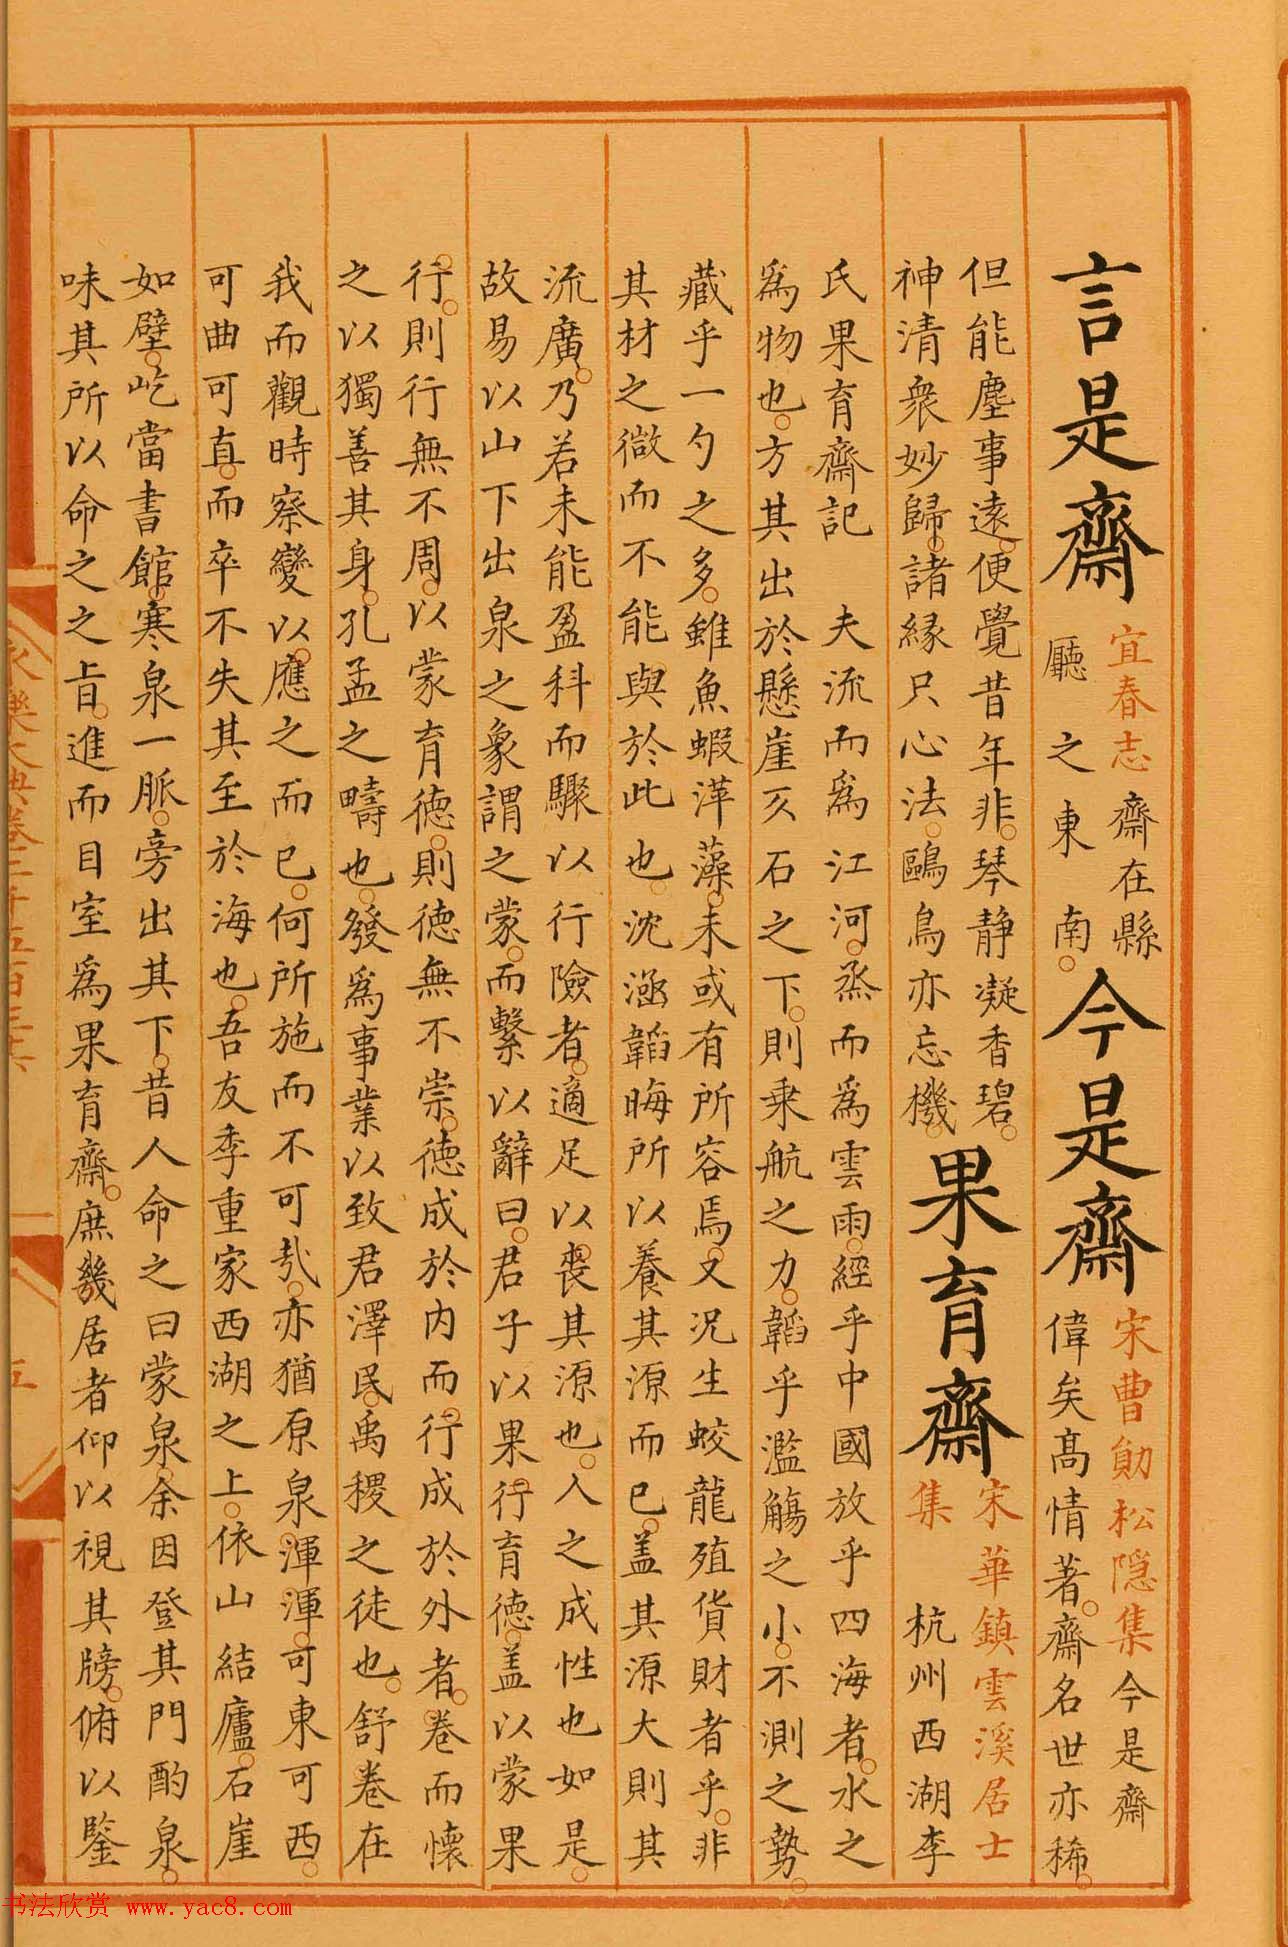 言是齋
宜春志 齋在縣
廳之東南。
今是齋
宋曹勛松隠集 今是齋
偉矣髙情著。齋名世亦稀。
但能塵事遠。便覺昔年非。琴静凝香碧。
神清衆妙歸。諸緣只心法。鷗鳥亦忘機。
果育齋
宋華鎮雲溪居士
集 杭州西湖李
氏果育齋記 夫流而爲江河。烝而爲雲雨。經乎中國放乎四海者。水之
爲物也。方其出於懸崖仄石之下。則乗航之力。韜乎濫觴之小。不測之勢。
藏乎一勺之多。雖魚蝦萍藻。未或有所容焉。又况生蛟龍殖貨財者乎。非
其材之微而不能與於此也。沈涵韜晦所以養其源而已。盖其源大則其
流廣。乃若未能盈科而驟以行險者。適足以丧其源也。人之成性也如是。
故易以山下出泉之象謂之蒙。而繫以辭曰。君子以果行育德。盖以蒙果
行。則行無不周。以蒙育德。則德無不崇。德成於内而行成於外者。卷而懷
之以獨善其身。孔孟之疇也。發爲事業以致君澤民。禹稷之徒也。舒卷在
我而觀時察變以應之而已。何所施而不可㢤。亦猶原泉渾渾。可東可西。
可曲可直。而卒不失其至於海也。吾友季重家西湖之上。依山結廬。石崖
如壁。屹當書館。寒泉一脈。旁出其下。昔人命之曰蒙泉。余因登其門酌泉。
味其所以命之之旨。進而目室爲果育齋。庶幾居者仰以視其牓。俯以鑒
永樂大典卷二千五百三十六
五
书法欣赏 www.yac8.com